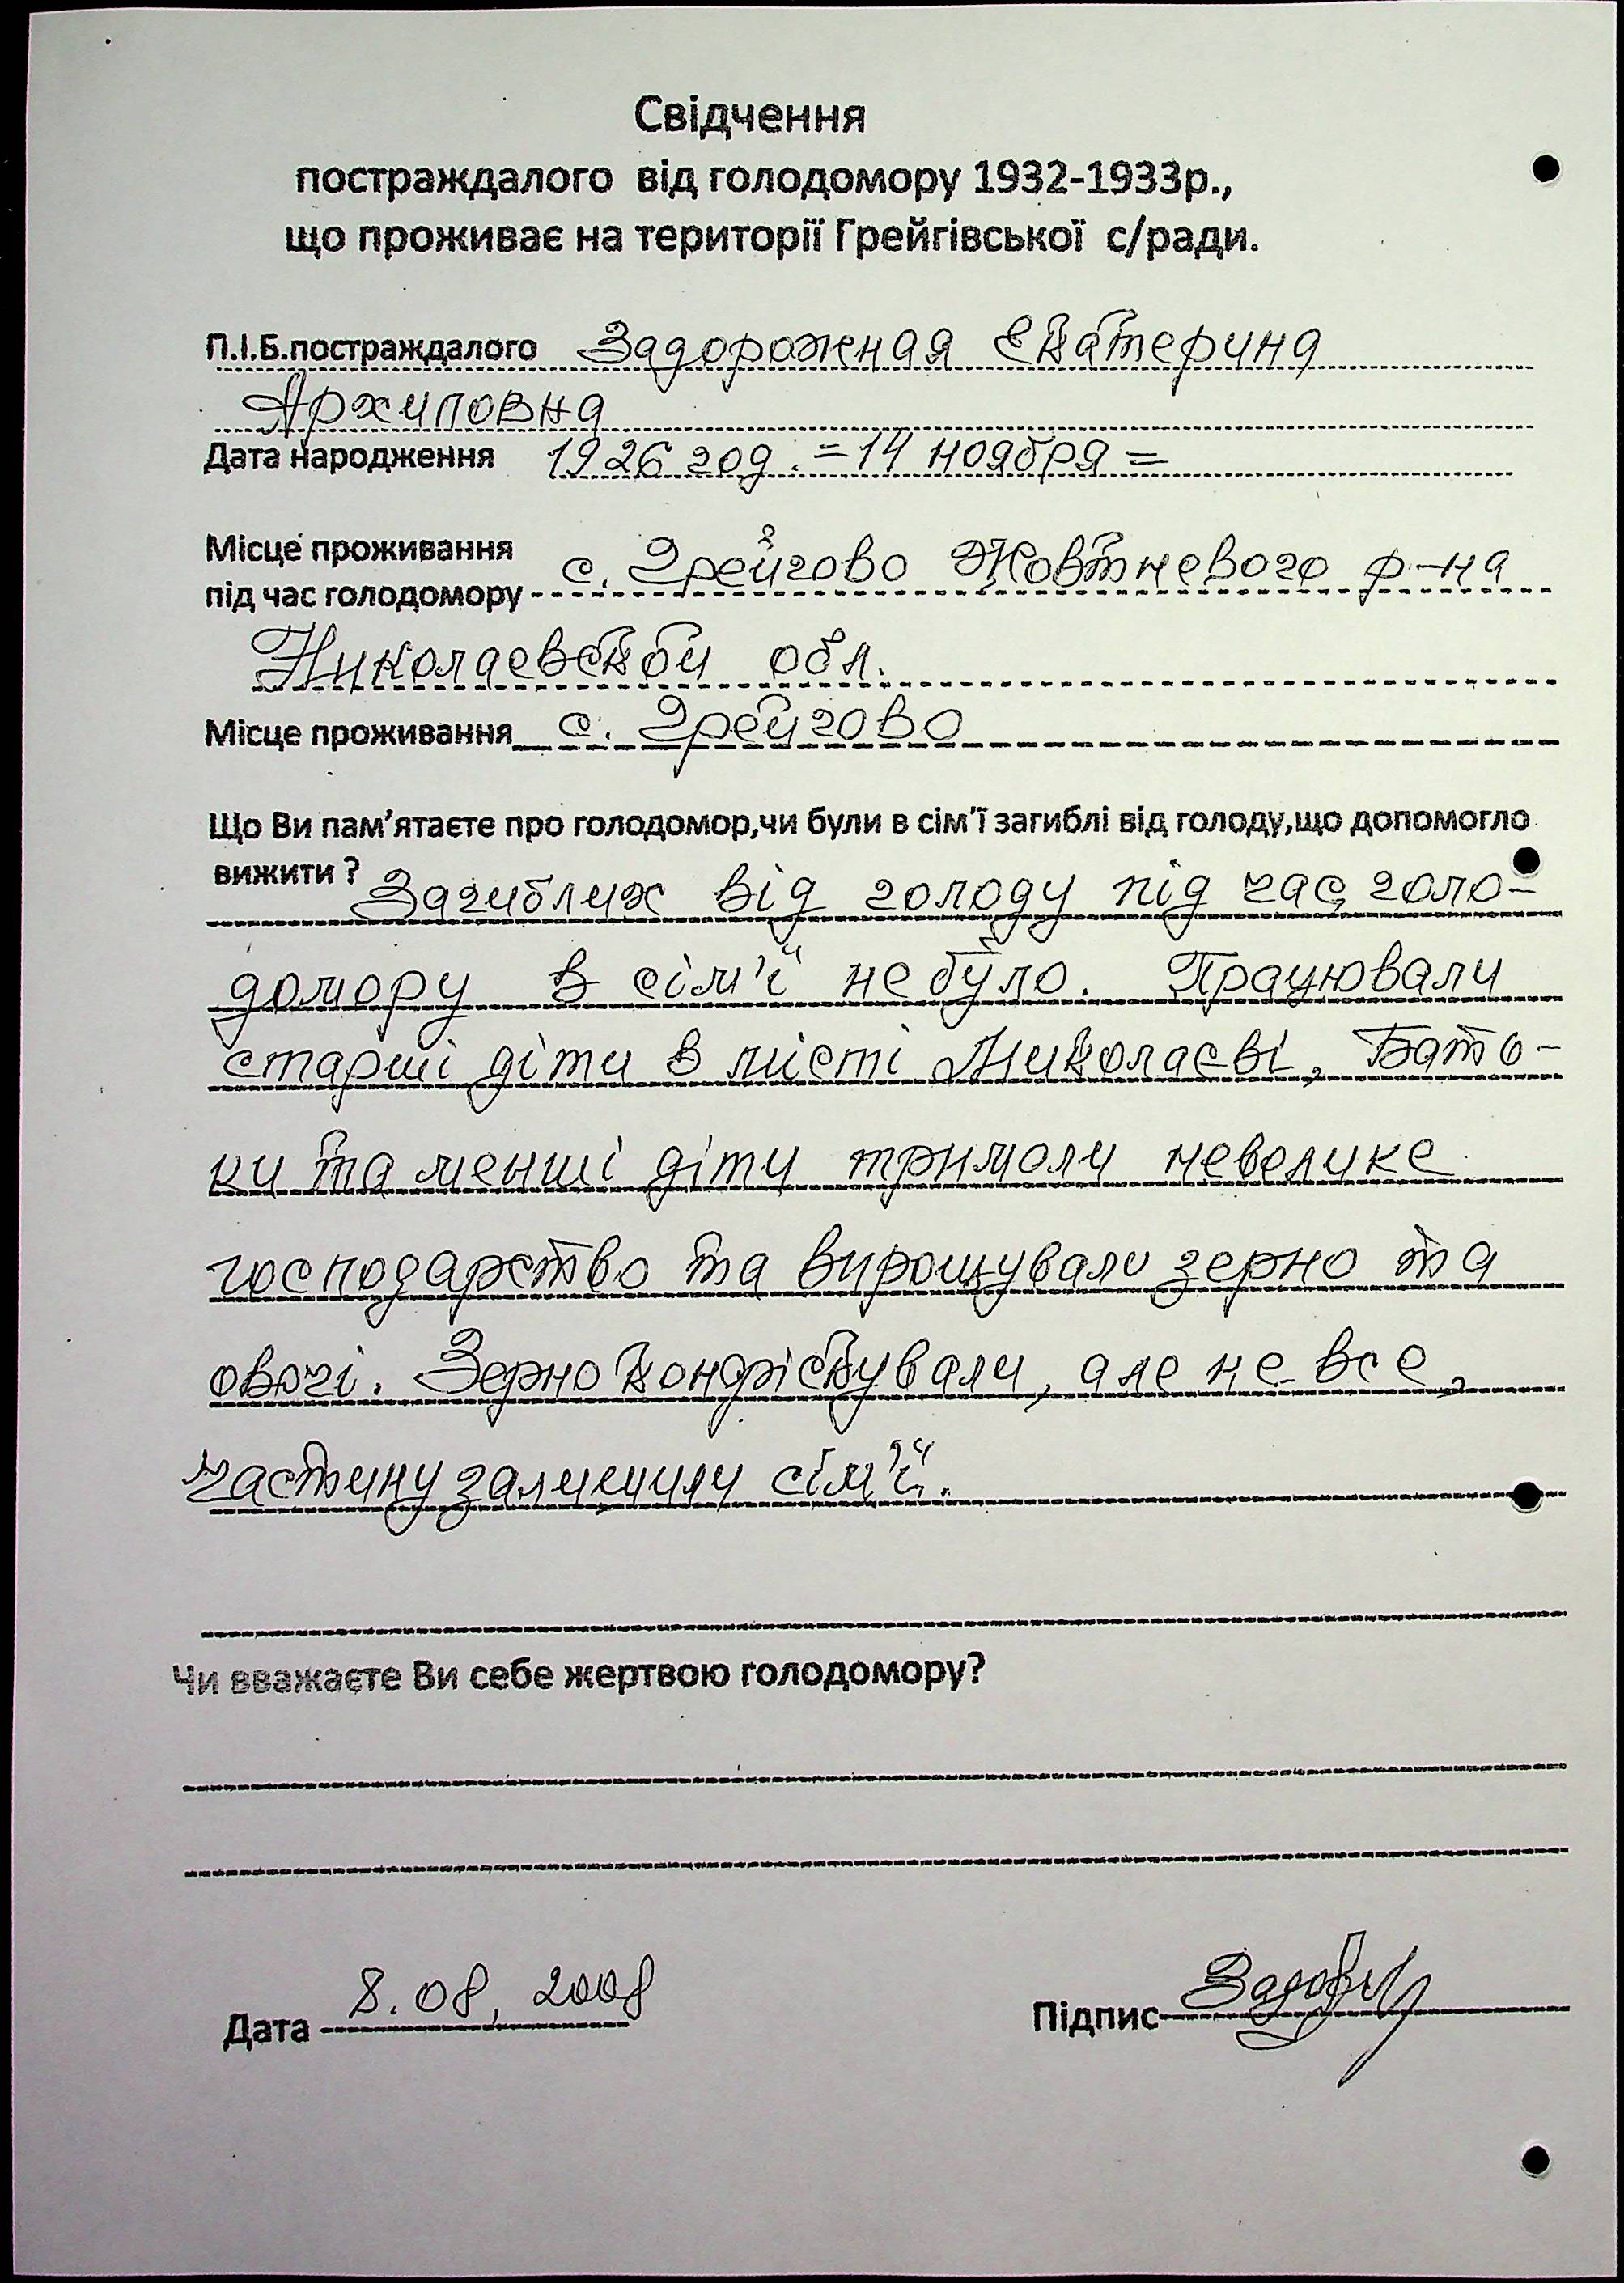 Свідчення
постраждалого від голодомору 1932-1933р.,
що проживає на території Грейгівської с/ради.
П.І.Б.постраждалого Задорожная Екатерина
Архиповна
Дата народження 1926 год. =14 ноября =
Місце проживання
під час голодомору с. Грейгово Жовтневого р-на
Николаевской обл.
Місце проживання с. Грейгово
Що Ви пам'ятаєте про голодомор,чи були в сім'ї загиблі від голоду,що допомогло
вижити ? Загиблих від голоду під час голо-
домору в сім'ї не було. Працювали
старші діти в місті Миколаєві, Бать-
ки та менші діти тримали невелике
господарство та вирощували зерно та
овочі. Зерно конфіскували, але не все,
частину залишили сім'ї.
Чи вважаєте Ви себе жертвою голодомору?
Дата 8.08.2008
Підпис